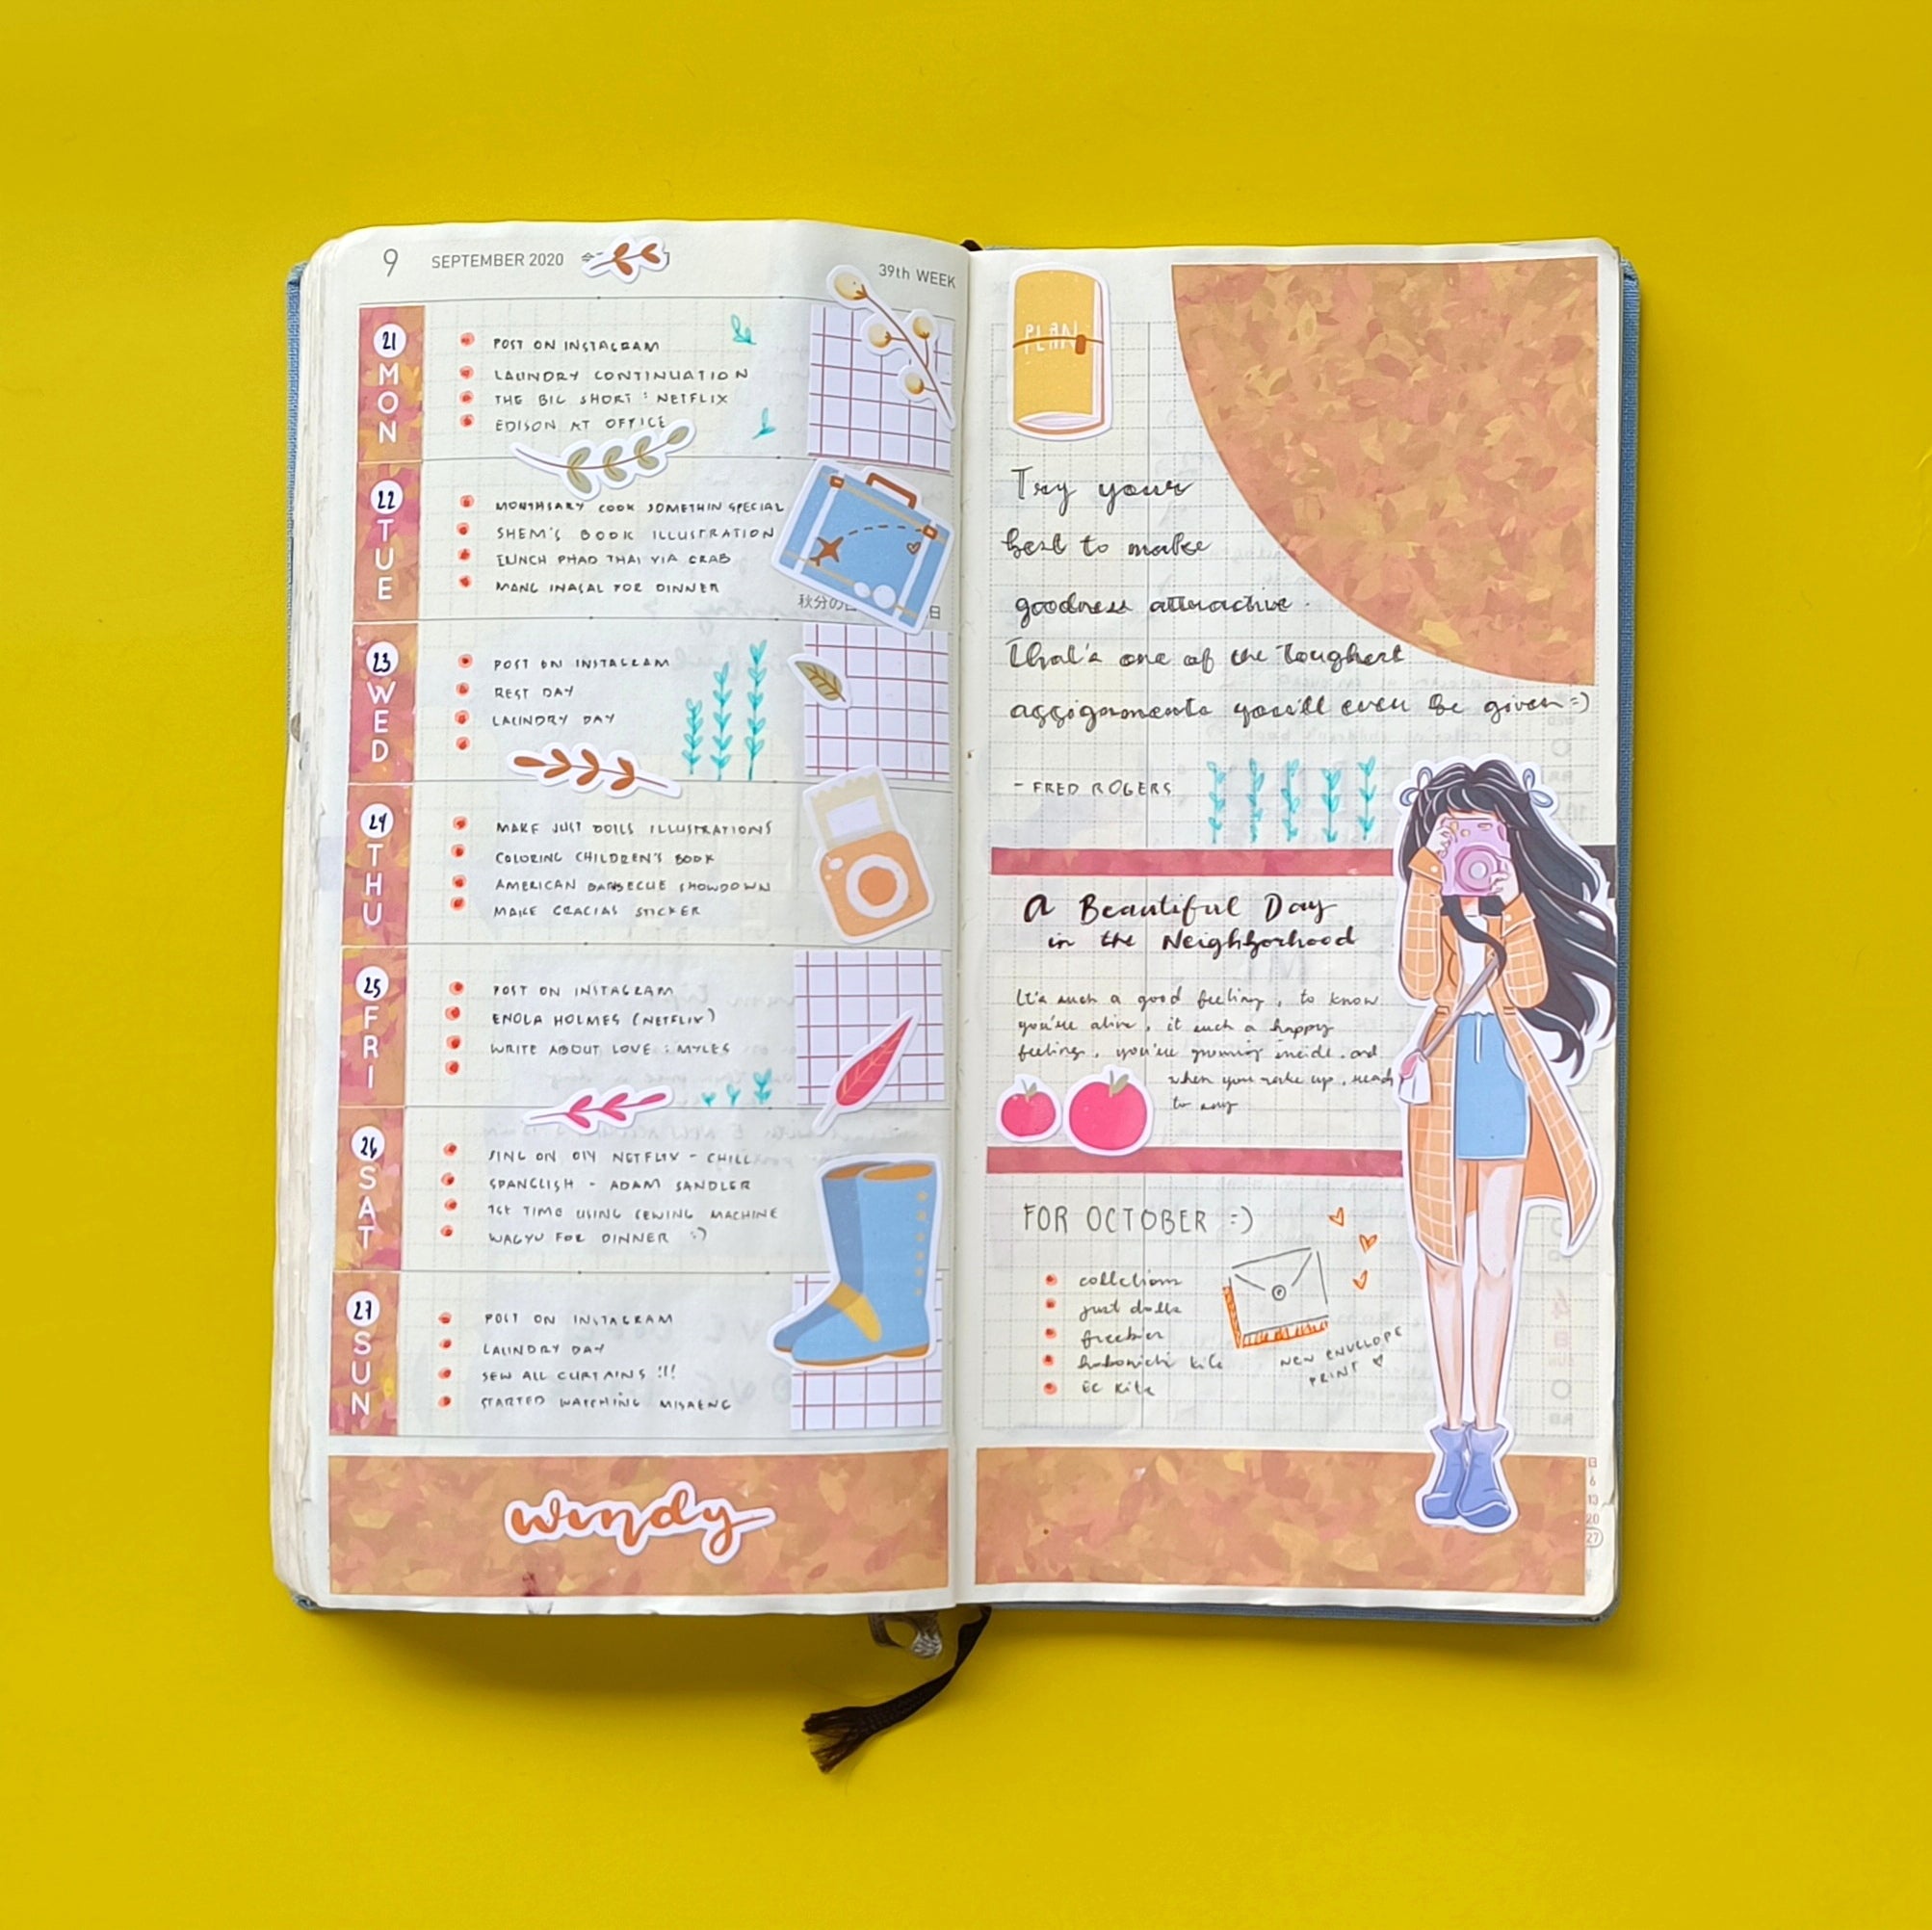 9 SEPTEMBER 2020
39th WEEK
21
MON
POST ON INSTAGRAM
LAUNDRY CONTINUATION
THE BIG SHORT : NETFLIX
EDISON AT OFFICE
22
TUE
MONTHSARY COOK SOMETHIN SPECIAL
SHEM'S BOOK ILLUSTRATION
LUNCH PHAD THAI VIA GRAB
MANG INASAL FOR DINNER
秋分の
日
23
WED
POST ON INSTAGRAM
REST DAY
LAUNDRY DAY
24
THU
MAKE JUST DOLLS ILLUSTRATIONS
COLORING CHILDREN'S BOOK
AMERICAN BARBECUE SHOWDOWN
MAKE GRACIAS STICKER
25
FRI
POST ON INSTAGRAM
ENOLA HOLMES (NETFLIX)
WRITE ABOUT LOVE : MYLES
26
SAT
SING ON DIY NETFLIX - CHILL
SPANGLISH - ADAM SANDLER
1st TIME USING SEWING MACHINE
WAGYU FOR DINNER :)
27
SUN
POST ON INSTAGRAM
LAUNDRY DAY
SEW ALL CURTAINS !!!
STARTED WATCHING MISAENG
windy
PLAN
Try your
best to make
goodness attractive.
That's one of the toughest
assignments you'll ever be given =)
- FRED ROGERS
A Beautiful Day
in the Neighborhood
It's such a good feeling, to know
you're alive, it such a happy
feelings, you're growing inside. and
when you wake up, ready
to say
FOR OCTOBER =)
collctions
just dolls
freebies
hobonichi kits
EC kits
NEW ENVELOPE
PRINT
日
6
13
20
27